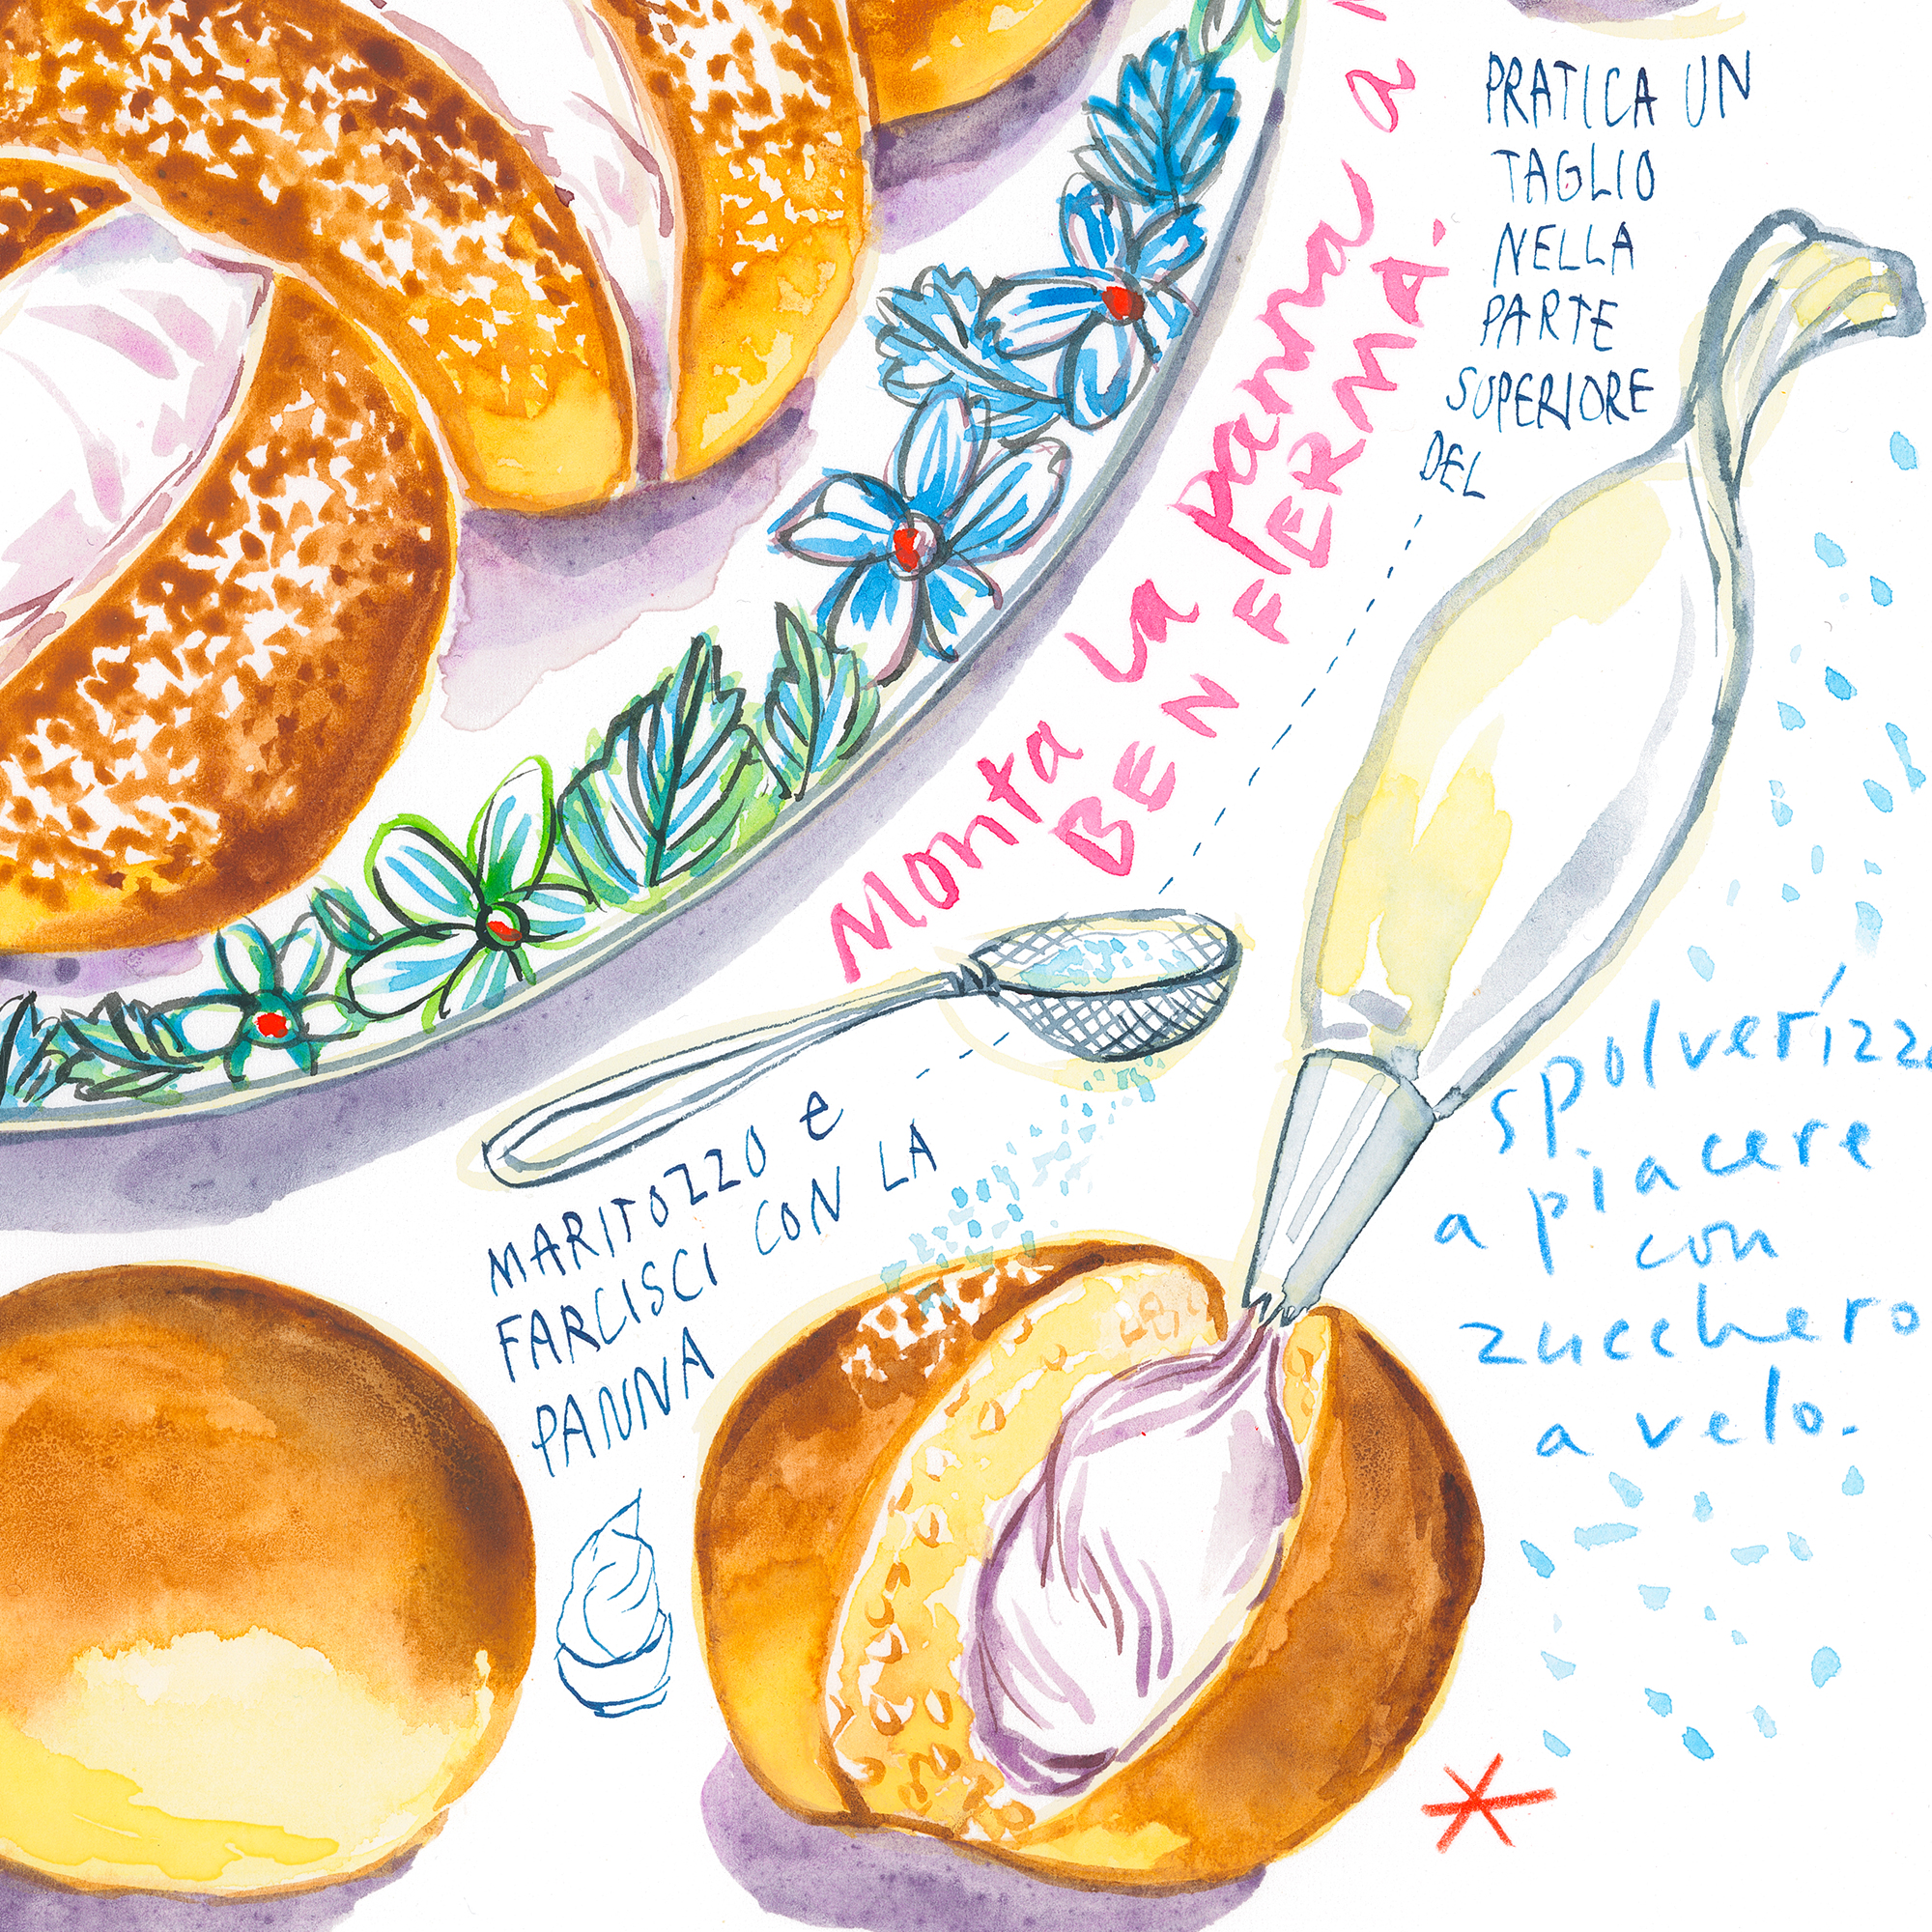 Monta la panna a
BEN FERMA.
PRATICA UN
TAGLIO
NELLA
PARTE
SUPERIORE
DEL
MARITOZZO e
FARCISCI CON LA
PANNA
spolverizz
a piacere
con
zucchero
a velo.